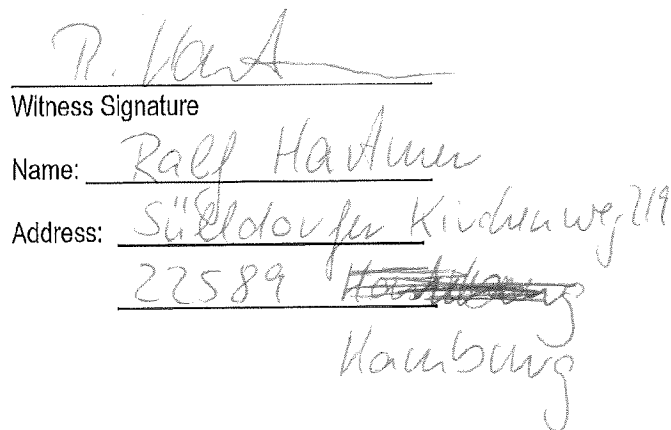 R. Hart
Witness Signature
Name: Ralf Hartmer
Address: Sülldorfer Kirchenweg 219
22589
Hamburg